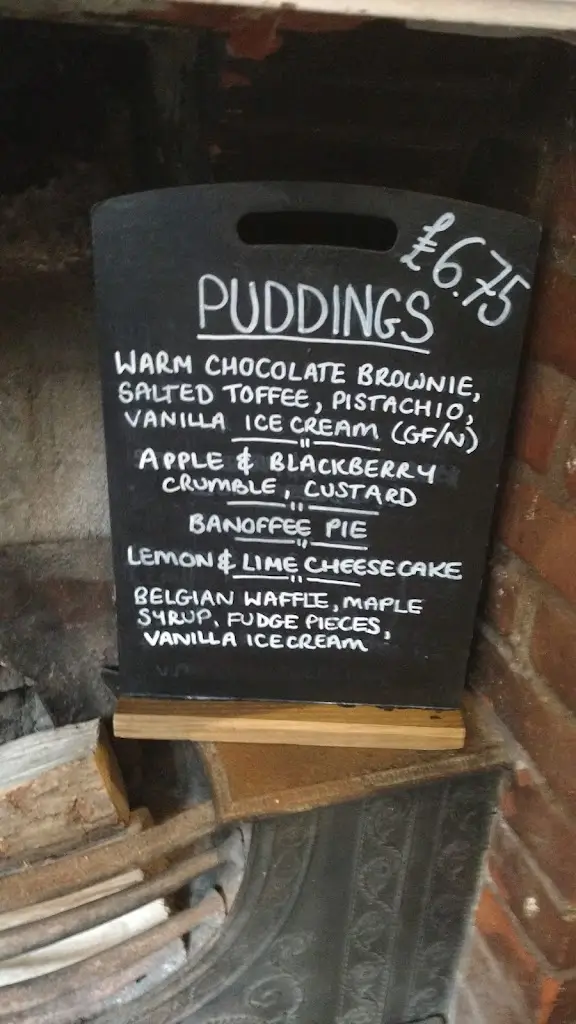 £6.75
PUDDINGS
WARM CHOCOLATE BROWNIE,
SALTED TOFFEE, PISTACHIO,
VANILLA ICE CREAM (GF/N)
APPLE & BLACKBERRY
CRUMBLE, CUSTARD
BANOFFEE PIE
LEMON & LIME CHEESECAKE
BELGIAN WAFFLE, MAPLE
SYRUP, FUDGE PIECES,
VANILLA ICECREAM